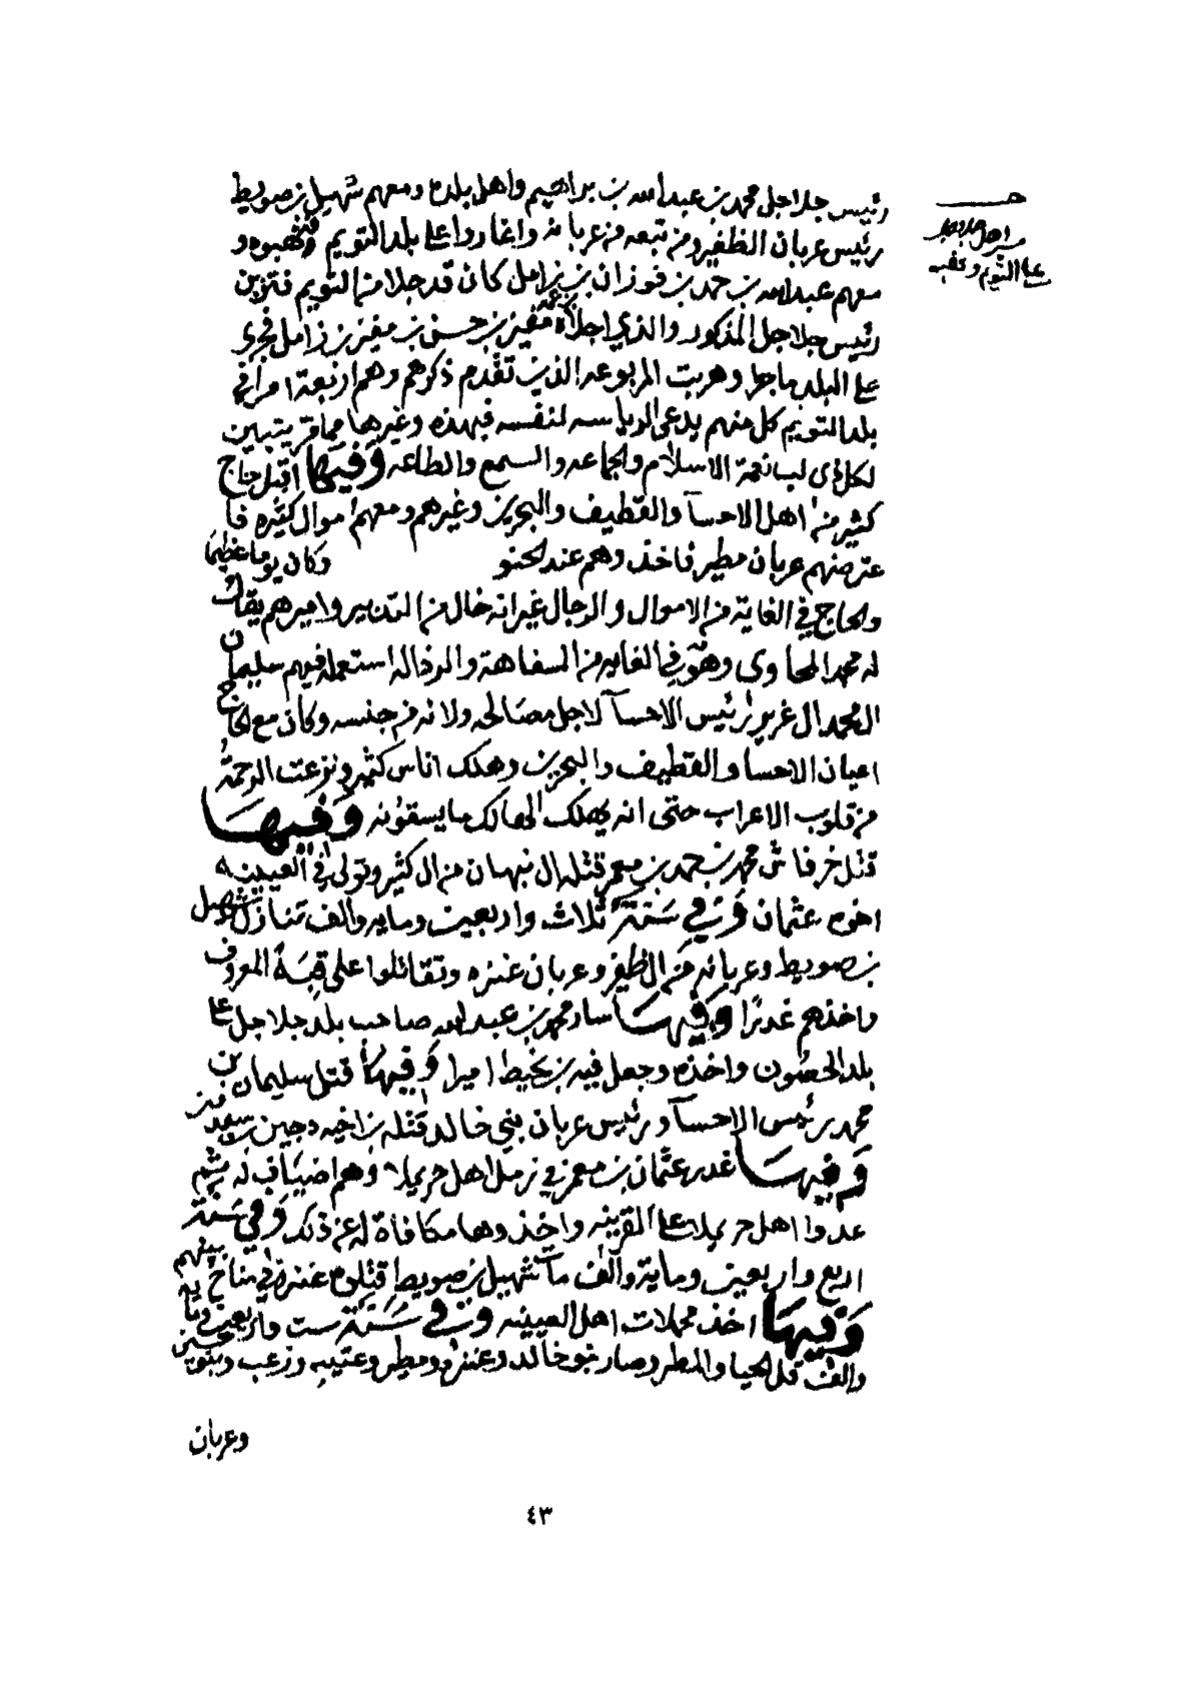 رئيس جلاجل محمد بن عبدالله بن براهيم واهل بلده ومعهم شهيل بن صويط
رئيس عربان الظفير ومن تبعه من عربانه واغاروا على بلد التويم ونهبوه و
معهم عبدالله بن حمد بن فوزان بن زامل كان قد جلا من التويم فتزبن
رئيس جلاجل المذكور والذي اجلاه مفيز بن حسن بن مفيز بن زامل فجرى
على البلد ما جرا وهربت المربوعه الذين تقدم ذكرهم وهم اربعة امرا في
بلد التويم كل منهم يدعى الرياسه لنفسه فبهذه وغيرها مما قر يتبين
لكل ذى لب نعمة الاسلام والجماعه والسمع والطاعه وفيها اقبل حاج
كثير من اهل الاحسآ والقطيف والبحرين وغيرهم ومعهم اموال كثيره فا
عترضهم عربان مطير فاخذ وهم عند الحنو وكان يوما عظيما
والحاج في الغاية من الاموال والرجال غير انه خال من التدبير واميرهم يقال
له محمد المحاوى وهو في الغايه من السفاهة والرذاله استعمله فيهم سليمان
المحمد ال غرير رئيس الاحسآ لاجل مصالحه ولانه من جنسه وكان مع الحاج
اعيان الاحسا والقطيف والبحرين وهلك اناس كثير ونزعت الرحمة
من قلوب الاعراب حتى انه يهلك الهالك ما يسقونه وفيها
قتل خرفاش محمد بن حمد بن معمر قتله ال نبهان من ال كثير وتولى في العيينه
اخوه عثمان وفي سنة ثلاث واربعين ومايه والف تنازل شهيل
بن صويط وعربانه من الظفير وعربان عنزه وتقاتلوا على قبة المعروف
واخذهم غدرًا وفيها سار محمد بن عبدالله صاحب بلد جلاجل على
بلد الحصون واخذه وجعل فيه بن نحيط اميرا وفيها قتل سليمان بن
محمد رئيس الاحسآ ورئيس عربان بني خالد قتله بن اخيه دجين بن سعدون
وفيها غدر عثمان بن معمر في زمل اهل حريملا وهم اضياف له ثم
عدوا اهل حريملا على القرينه واخذوها مكافاة له عن ذلك وفي سنة
اربع واربعين وماية والف مات شهيل بن صويط قتلوه عنزة في مناخ بينهم
وفيها اخذ محملات اهل العيينه وفي سنة ست واربعين وماية
والف قل الحيا والمطر وصار بنو خالد وعنزه ومطير وعتيبه وزعب وبنو حسين
وعربان
اهل جلاجل
على التويم ونهبه
٤٣